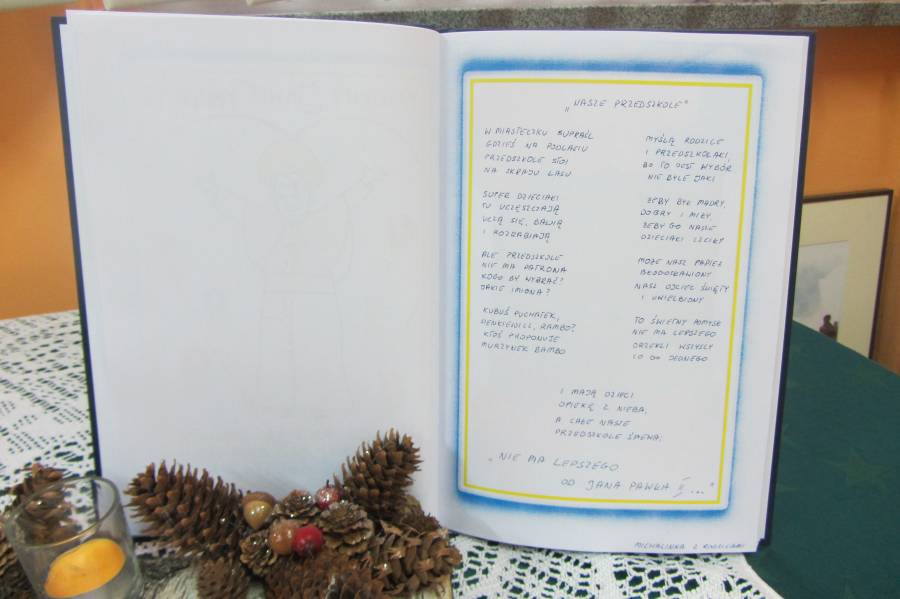 „NASZE PRZEDSZKOLE"
W MIASTECZKU SUPRAŚL
GDZIEŚ NA PODLASIU
PRZEDSZKOLE STOI
NA SKRAJU LASU
SUPER DZIECIAKI
TU UCZĘSZCZAJĄ
UCZĄ SIĘ, BAWIĄ
I ROZRABIAJĄ
ALE PRZEDSZKOLE
NIE MA PATRONA
KOGO BY WYBRAĆ?
JAKIE IMIONA?
KUBUŚ PUCHATEK,
SIENKIEWICZ, RAMBO?
KTOŚ PROPONUJE
MURZYNEK BAMBO
MYŚLĄ RODZICE
I PRZEDSZKOLAKI,
BO TO JEST WYBÓR
NIE BYLE JAKI
ŻEBY BYŁ MĄDRY,
DOBRY I MIŁY,
ŻEBY GO NASZE
DZIECIAKI CZCIŁY
MOŻE NASZ PAPIEŻ
BŁOGOSŁAWIONY
NASZ OJCIEC ŚWIĘTY
I UWIELBIONY
TO ŚWIETNY POMYSŁ
NIE MA LEPSZEGO
ORZEKLI WSZYSCY
CO DO JEDNEGO
I MAJĄ DZIECI
OPIEKĘ Z NIEBA,
A CAŁE NASZE
PRZEDSZKOLE ŚPIEWA:
„NIE MA LEPSZEGO
OD JANA PAWŁA II..."
MICHALINKA Z RODZICAMI